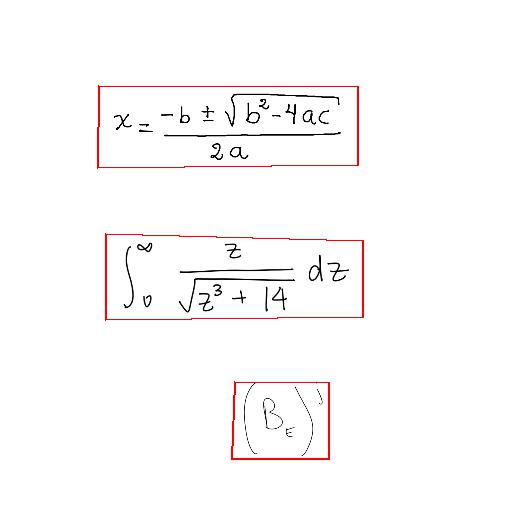 x = \frac{-b \pm \sqrt{b^2 - 4ac}}{2a}
\int_0^\infty \frac{z}{\sqrt{z^3 + 14}} dz
(B_E)'